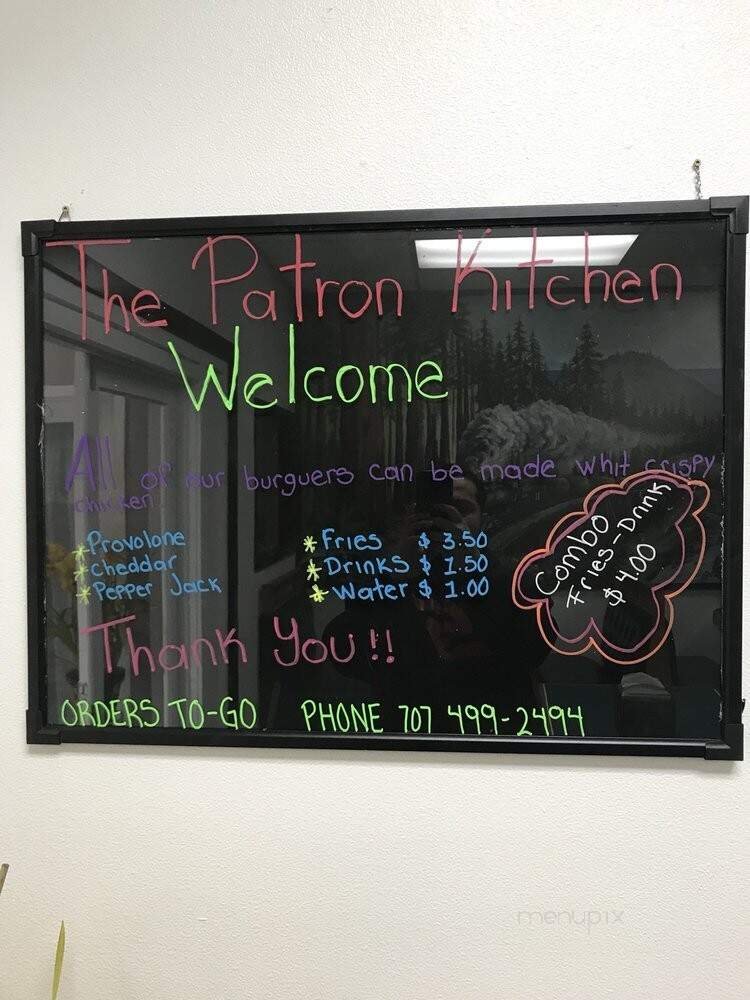 The Patron Kitchen
Welcome
All of our burguers can be made whit crispy
chicken
*Provolone
*cheddar
*Pepper Jack
*Fries $ 3.50
*Drinks $ 1.50
*Water $ 1.00
Combo
Fries-Drink
$ 4.00
Thank You!!
ORDERS TO-GO PHONE 707 499-2494
menupix